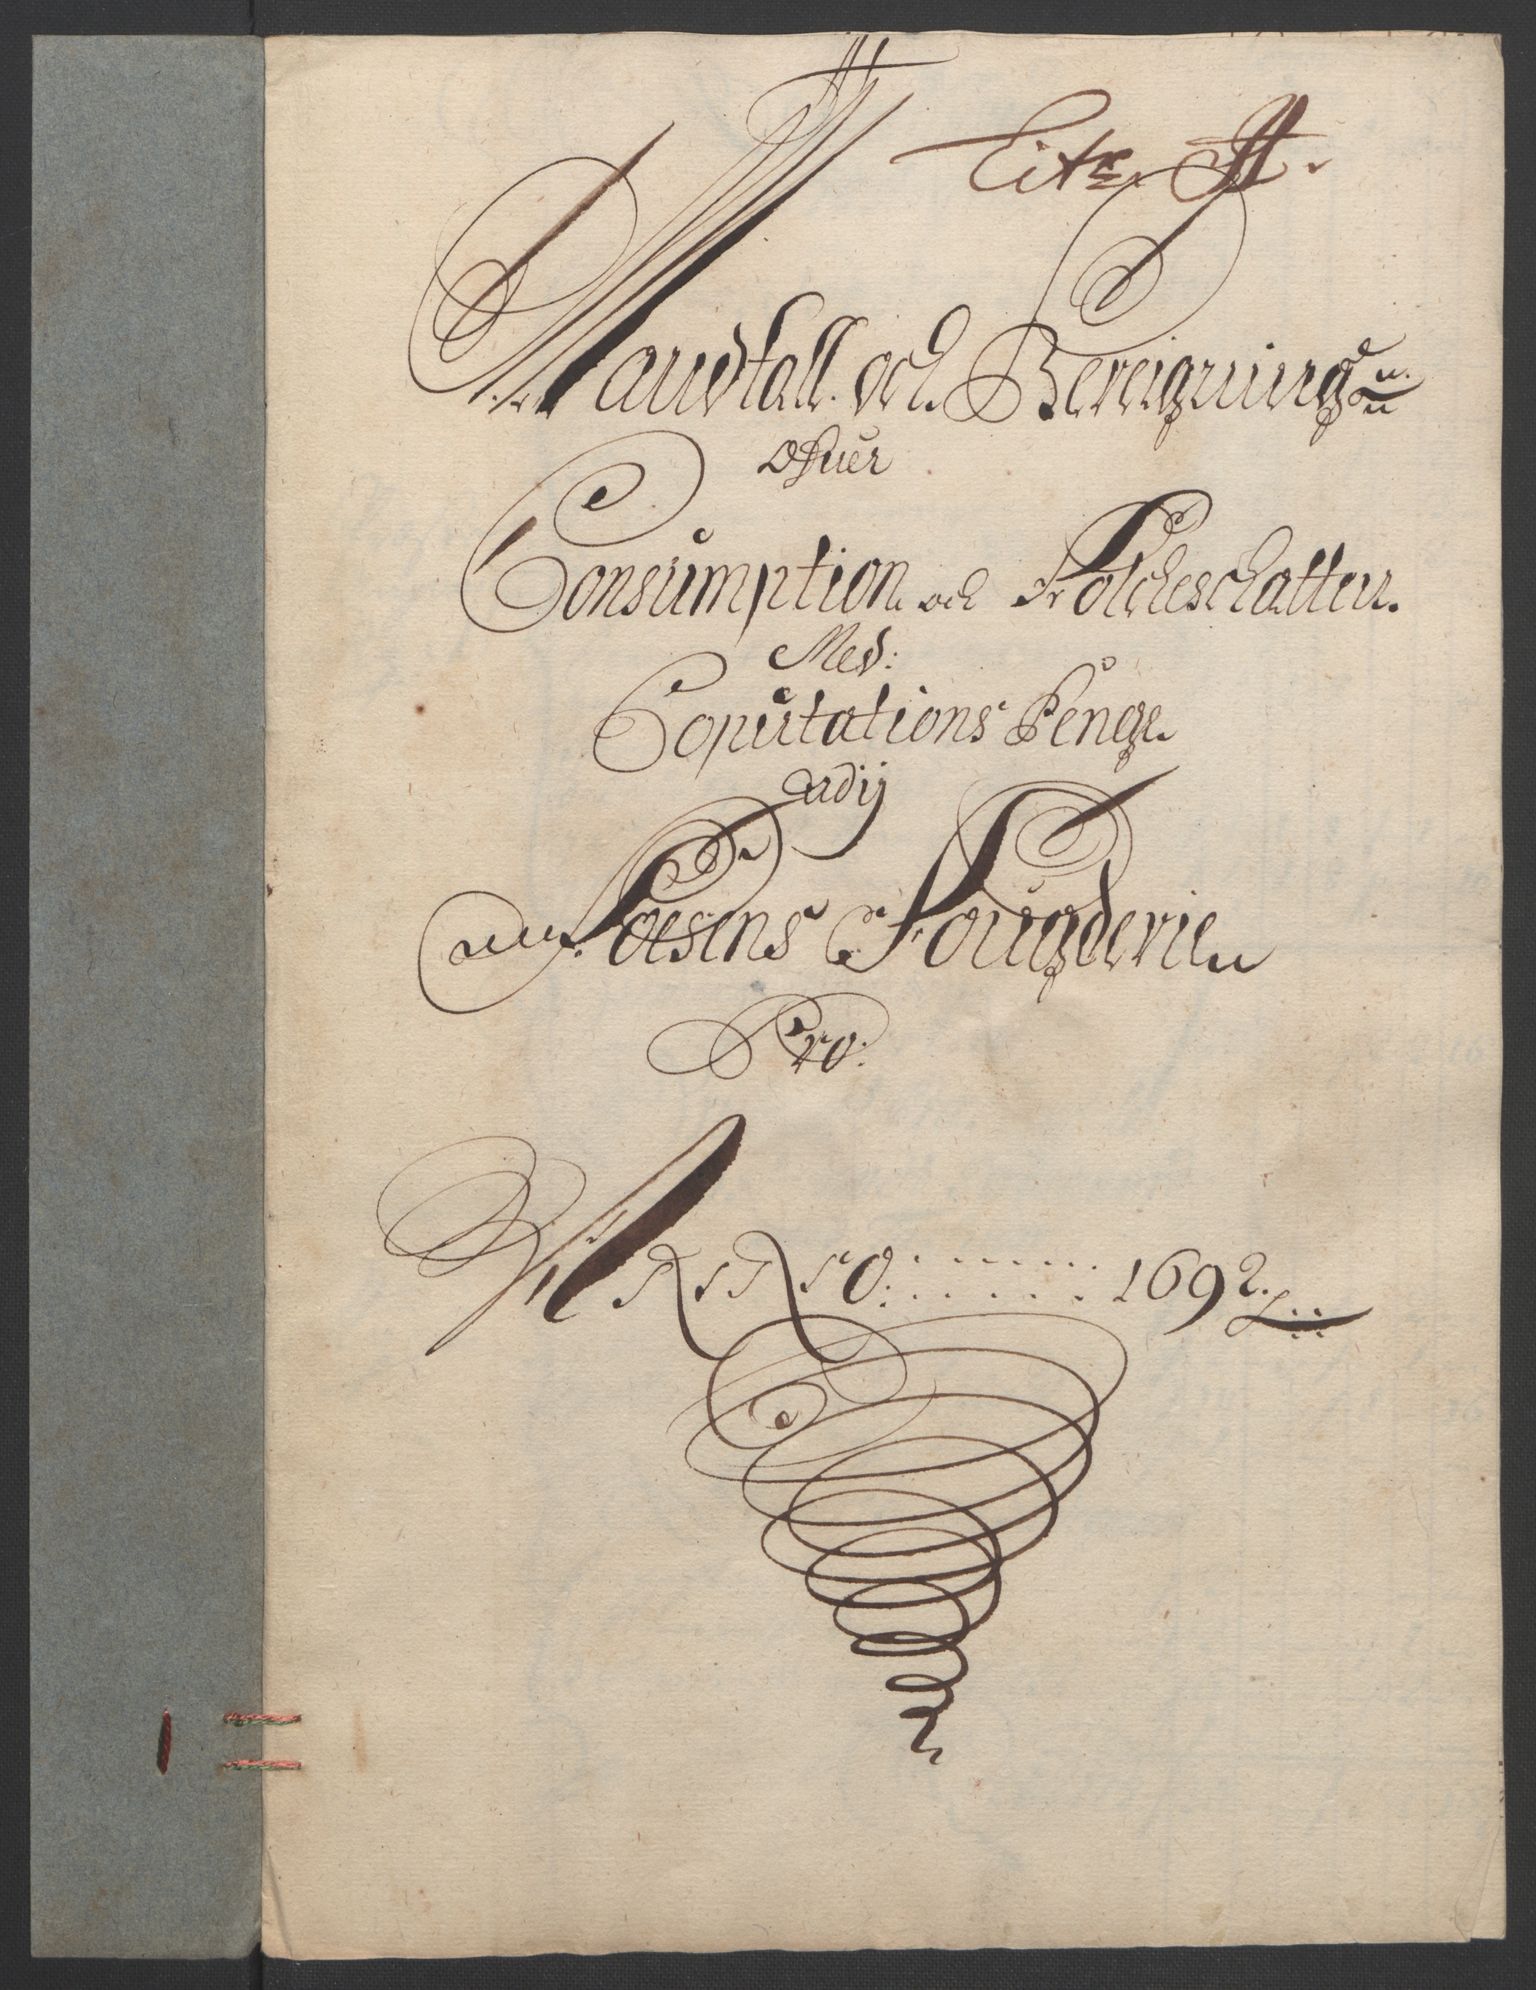 Litr. A.
Mandtall och Bereigning
ofuer
Consumption och Folcheschatten.
Med:
Coputations Penge
udij
Fosens Fougderie
Pro:
ANNO: 1692.